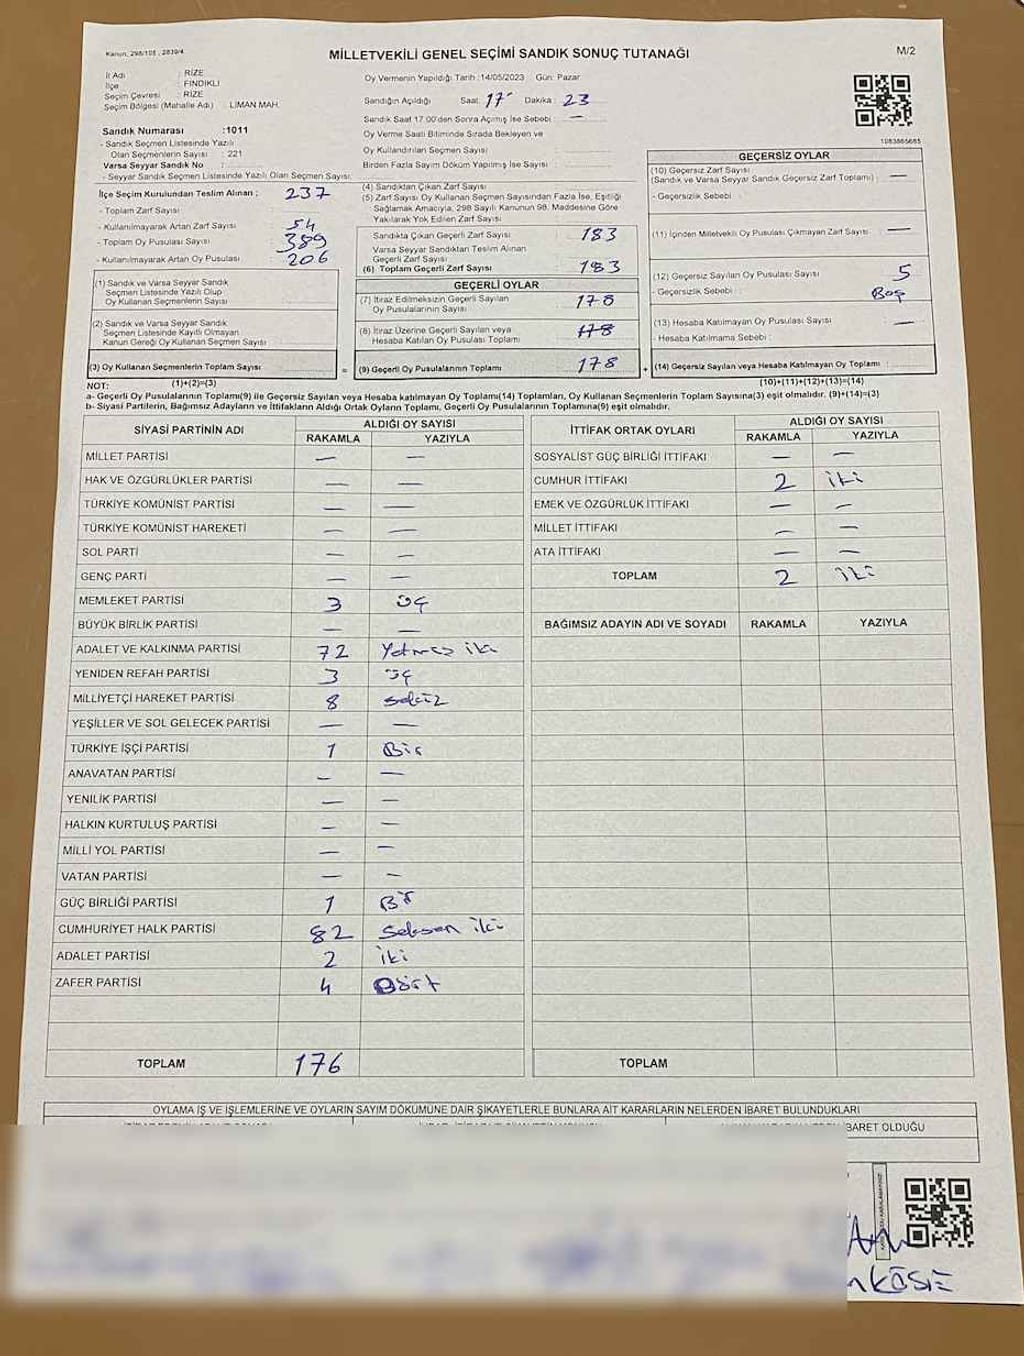 Kanun, 298/105 , 2839/4
MİLLETVEKİLİ GENEL SEÇİMİ SANDIK SONUÇ TUTANAĞI
M/2
İl Adı : RİZE
İlçe : FINDIKLI
Seçim Çevresi : RİZE
Seçim Bölgesi (Mahalle Adı) : LİMAN MAH.
Sandık Numarası :1011
- Sandık Seçmen Listesinde Yazılı
Olan Seçmenlerin Sayısı : 221
Varsa Seyyar Sandık No :
- Seyyar Sandık Seçmen Listesinde Yazılı Olan Seçmen Sayısı:
Oy Vermenin Yapıldığı Tarih :14/05/2023 Gün: Pazar
Sandığın Açıldığı Saat: 17 Dakika : 23
Sandık Saat 17.00'den Sonra Açımış İse Sebebi : —
Oy Verme Saati Bitiminde Sırada Bekleyen ve
Oy Kullandırılan Seçmen Sayısı :
Birden Fazla Sayım Döküm Yapılmış İse Sayısı :
1083865685
İlçe Seçim Kurulundan Teslim Alınan ; 237
- Toplam Zarf Sayısı :
- Kullanılmayarak Artan Zarf Sayısı : 54
- Toplam Oy Pusulası Sayısı : 389
- Kullanılmayarak Artan Oy Pusulası : 206
(1) Sandık ve Varsa Seyyar Sandık
Seçmen Listesinde Yazılı Olup
Oy Kullanan Seçmenlerin Sayısı :
(2) Sandık ve Varsa Seyyar Sandık
Seçmen Listesinde Kayıtlı Olmayan
Kanun Gereği Oy Kullanan Seçmen Sayısı :
(3) Oy Kullanan Seçmenlerin Toplam Sayısı :
(4) Sandıktan Çıkan Zarf Sayısı :
(5) Zarf Sayısı Oy Kullanan Seçmen Sayısından Fazla İse, Eşitliği
Sağlamak Amacıyla, 298 Sayılı Kanunun 98. Maddesine Göre
Yakılarak Yok Edilen Zarf Sayısı :
Sandıkta Çıkan Geçerli Zarf Sayısı : 183
Varsa Seyyar Sandıktan Teslim Alınan
Geçerli Zarf Sayısı :
(6) Toplam Geçerli Zarf Sayısı : 183
GEÇERLİ OYLAR
(7) İtiraz Edilmeksizin Geçerli Sayılan
Oy Pusulalarının Sayısı : 178
(8) İtiraz Üzerine Geçerli Sayılan veya
Hesaba Katılan Oy Pusulası Toplamı : 178
= (9) Geçerli Oy Pusulalarının Toplamı : 178 +
GEÇERSİZ OYLAR
(10) Geçersiz Zarf Sayısı
(Sandık ve Varsa Seyyar Sandık Geçersiz Zarf Toplamı) : —
- Geçersizlik Sebebi :
(11) İçinden Milletvekili Oy Pusulası Çıkmayan Zarf Sayısı : —
(12) Geçersiz Sayılan Oy Pusulası Sayısı : 5
- Geçersizlik Sebebi : Boş
(13) Hesaba Katılmayan Oy Pusulası Sayısı : —
- Hesaba Katılmama Sebebi :
(14) Geçersiz Sayılan veya Hesaba Katılmayan Oy Toplamı :
NOT: (1)+(2)=(3)
(10)+(11)+(12)+(13)=(14)
a- Geçerli Oy Pusulalarının Toplamı(9) ile Geçersiz Sayılan veya Hesaba katılmayan Oy Toplamı(14) Toplamları, Oy Kullanan Seçmenlerin Toplam Sayısına(3) eşit olmalıdır. (9)+(14)=(3)
b- Siyasi Partilerin, Bağımsız Adayların ve İttifakların Aldığı Ortak Oyların Toplamı, Geçerli Oy Pusulalarının Toplamına(9) eşit olmalıdır.
SİYASİ PARTİNİN ADI ALDIĞI OY SAYISI
RAKAMLA YAZIYLA
MİLLET PARTİSİ — —
HAK VE ÖZGÜRLÜKLER PARTİSİ — —
TÜRKİYE KOMÜNİST PARTİSİ — —
TÜRKİYE KOMÜNİST HAREKETİ — —
SOL PARTİ — —
GENÇ PARTİ — —
MEMLEKET PARTİSİ 3 üç
BÜYÜK BİRLİK PARTİSİ — —
ADALET VE KALKINMA PARTİSİ 72 Yetmiş iki
YENİDEN REFAH PARTİSİ 3 üç
MİLLİYETÇİ HAREKET PARTİSİ 8 sekiz
YEŞİLLER VE SOL GELECEK PARTİSİ — —
TÜRKİYE İŞÇİ PARTİSİ 1 Bir
ANAVATAN PARTİSİ — —
YENİLİK PARTİSİ — —
HALKIN KURTULUŞ PARTİSİ — —
MİLLİ YOL PARTİSİ — —
VATAN PARTİSİ — —
GÜÇ BİRLİĞİ PARTİSİ 1 Bir
CUMHURİYET HALK PARTİSİ 82 Seksen iki
ADALET PARTİSİ 2 iki
ZAFER PARTİSİ 4 Dört
TOPLAM 176
İTTİFAK ORTAK OYLARI ALDIĞI OY SAYISI
RAKAMLA YAZIYLA
SOSYALİST GÜÇ BİRLİĞİ İTTİFAKI — —
CUMHUR İTTİFAKI 2 iki
EMEK VE ÖZGÜRLÜK İTTİFAKI — —
MİLLET İTTİFAKI — —
ATA İTTİFAKI — —
TOPLAM 2 iki
BAĞIMSIZ ADAYIN ADI VE SOYADI RAKAMLA YAZIYLA
TOPLAM
OYLAMA İŞ VE İŞLEMLERİNE VE OYLARIN SAYIM DÖKÜMÜNE DAİR ŞİKAYETLERLE BUNLARA AİT KARARLARIN NELERDEN İBARET BULUNDUKLARI
İBARET OLDUĞU
KÖSE